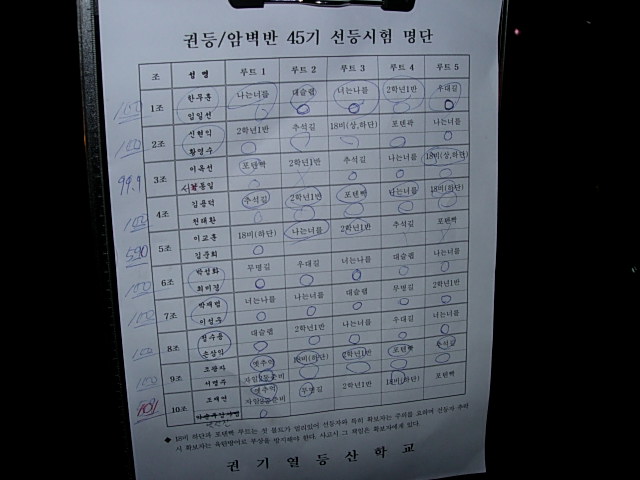 권등/암벽반 45기 선등시험 명단
조 성 명 루트 1 루트 2 루트 3 루트 4 루트 5
100 1조 한무훈 나는너를 대슬랩 너는나를 2학년1반 우대길
임일선
100 2조 신현익 2학년1반 추석길 18미(상,하단) 포텐락 나는너를
황명수
99.9 3조 이옥선 포텐빡 2학년1반 추석길 나는너를 18미(상,하단)
동일
100 4조 김용덕 추석길 2학년1반 포텐빡 나는너를 18미(하단)
천태환
590 5조 이교훈 18미(하단) 나는너를 2학년1반 추석길 포텐빡
김중희
100 6조 박성화 무명길 우대길 너는나를 대슬랩 나는너를
최미경
100 7조 박재범 너는나를 나는너를 대슬랩 무명길 2학년1반
이성우
100 8조 정수용 대슬랩 2학년1반 나는너를 우대길 너는나를
은상일
9조 조광자 옛추억 18미(하단) 2학년1반 포텐빡 추석길
서명주 자일2등준비
10조 조재연 옛추억 무명길 2학년1반 18미(하단) 포텐빡
자일2등준비
◆ 18미 하단과 포텐빡 루트는 첫 볼트가 멀리있어 선등자와 특히 확보자는 주의를 요하며 선등자 추락
시 확보자는 육탄방어로 부상을 방지해야 한다. 사고시 그 책임은 확보자에게 있다.
권 기 열 등 산 학 교